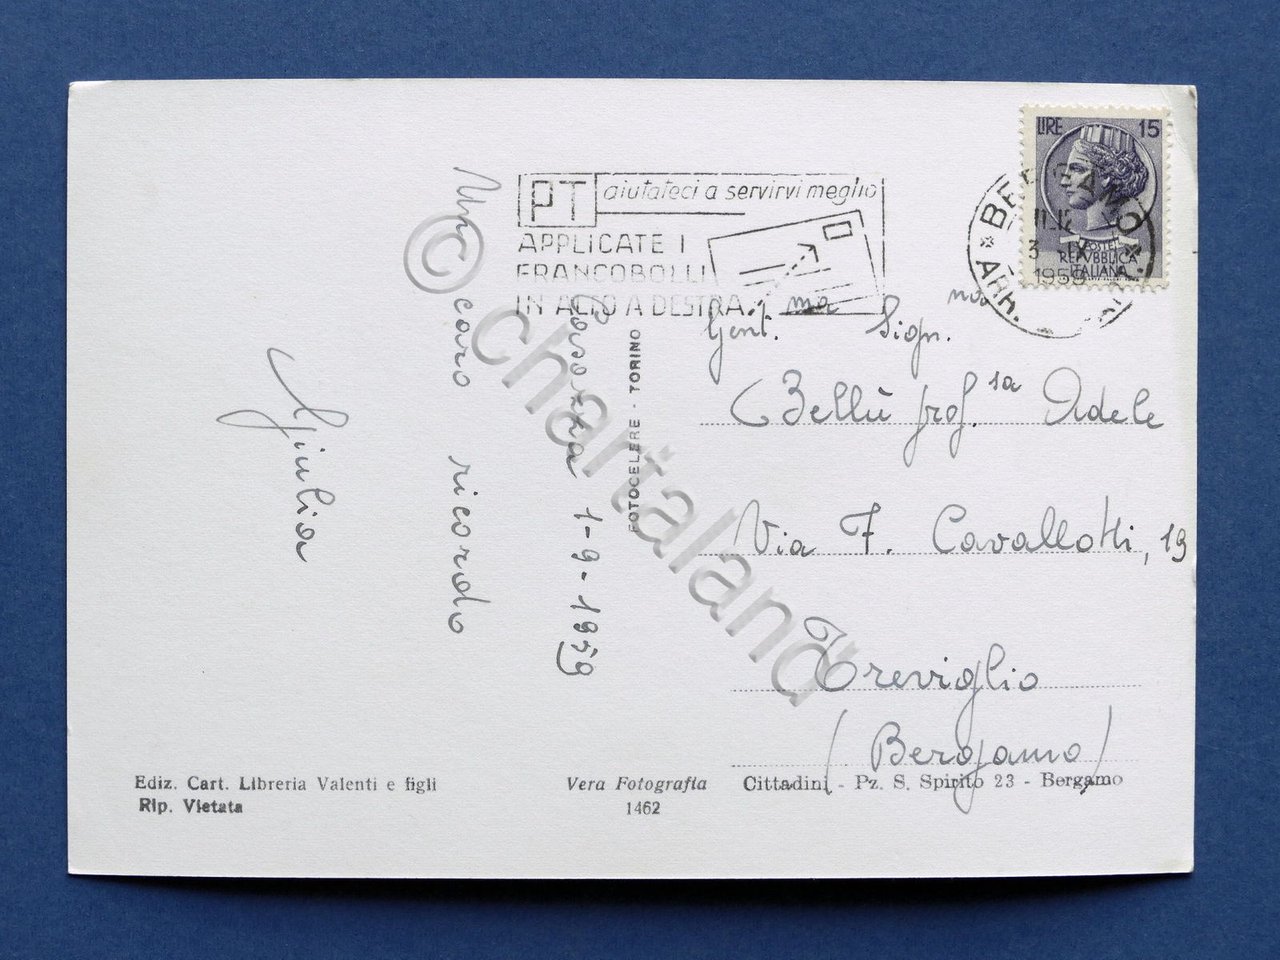 LIRE 15
POSTE
REPVBBLICA
ITALIANA
BERGAMO
1959
ARR.
PT aiutateci a servirvi meglio
APPLICATE I
FRANCOBOLLI
IN ALTO A DESTRA
Gent.ma Sign.na
Bellù prof.ssa Adele
Via F. Cavallotti, 19
Treviglio
(Bergamo)
1-9-1959
Un caro ricordo
Giulia
FOTOCELERE - TORINO
© chartaland
Ediz. Cart. Libreria Valenti e figli
Rip. Vietata
Vera Fotografia
1462
Cittadini - Pz. S. Spirito 23 - Bergamo